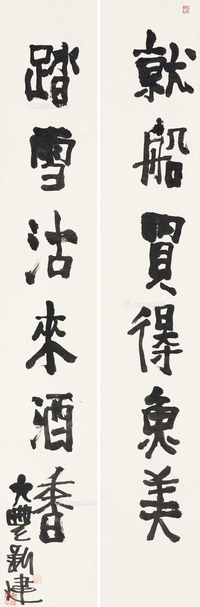 就船買得魚美
踏雪沽來酒香
大豐新建